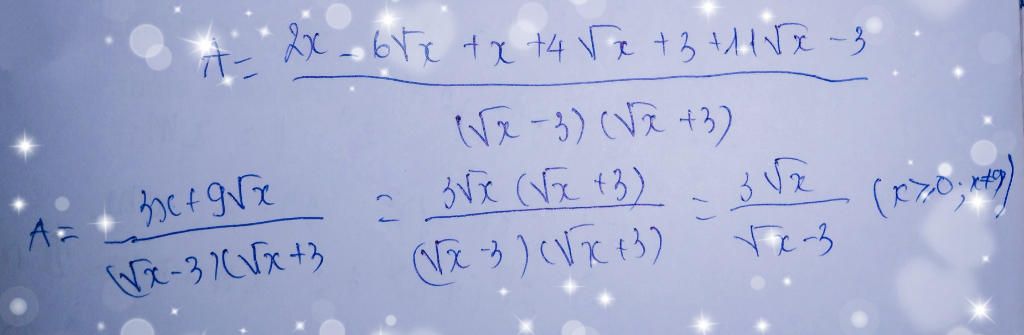 A = (2x - 6√x + x + 4√x + 3 + 11√x - 3) / ((√x - 3)(√x + 3))
A = (3x + 9√x) / ((√x - 3)(√x + 3) = (3√x (√x + 3)) / ((√x - 3)(√x + 3)) = (3√x) / (√x - 3) (x ≥ 0; x ≠ 9)